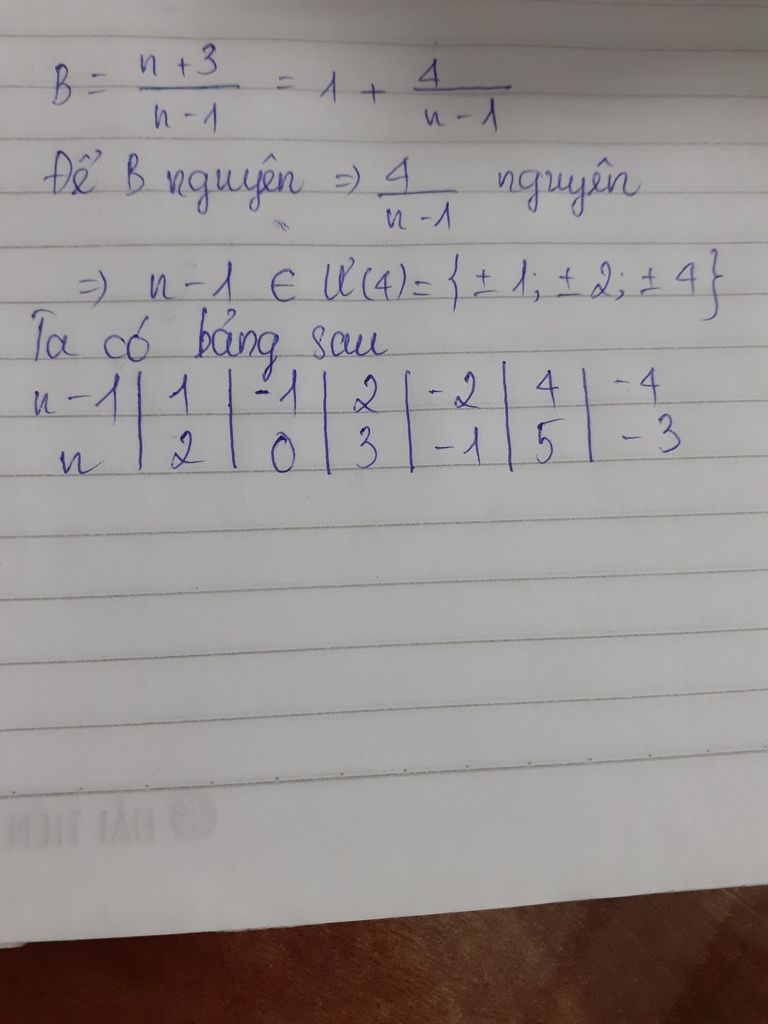 B = \frac{n+3}{n-1} = 1 + \frac{4}{n-1}
Để B nguyên => \frac{4}{n-1} nguyên
=> n-1 ∈ Ư(4) = {±1; ±2; ±4}
Ta có bảng sau
n-1 | 1 | -1 | 2 | -2 | 4 | -4
n | 2 | 0 | 3 | -1 | 5 | -3
HẢI TIẾN